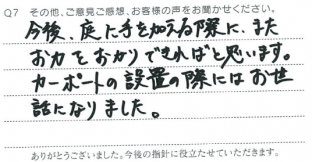 Q7 その他、ご意見ご感想、お客様の声をお聞かせください。
今後、庭に手を加える際に、また
お力をおかりできればと思います。
カーポートの設置の際にはお世
話になりました。
ありがとうございました。今後の指針に役立たせていただきます。